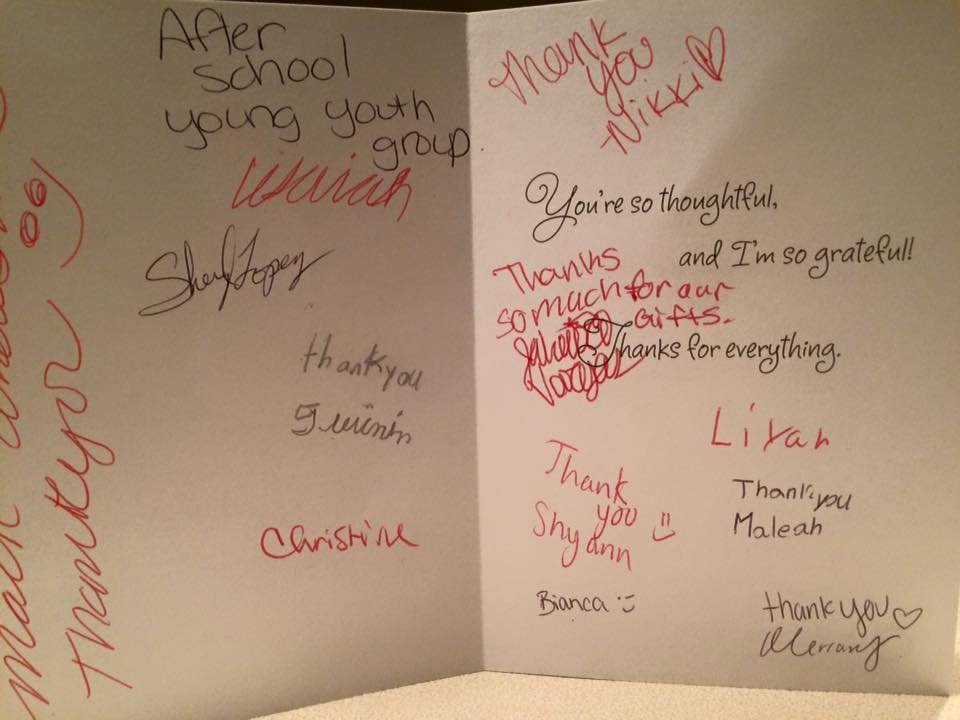 After
school
young youth
group
Sheryl Lopez
thankyou
Christine
Thankyou
Thank
you
Nikki♡
You're so thoughtful,
and I'm so grateful!
Thanks
so much for our
Gifts.
Thanks for everything.
Lirah
Thank
you
Shyann
Thankyou
Maleah
Bianca :)
thank you ♡